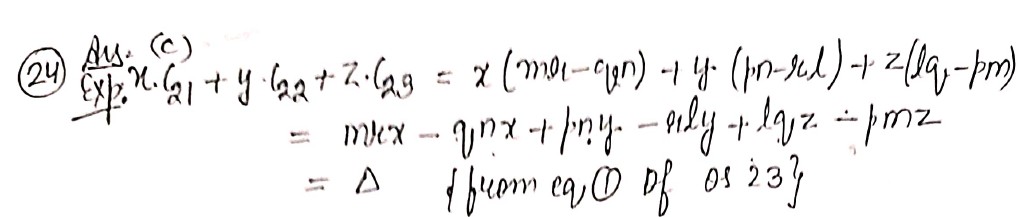 (24) Ans. (C)
Exp. x.C21 + y.C22 + z.C23 = x (mr-qn) + y. (pn-rl) + z(lq-pm)
= mrx - qnx + pny - rly + lqz - pmz
= Δ {from eq ① Of Qs 23}